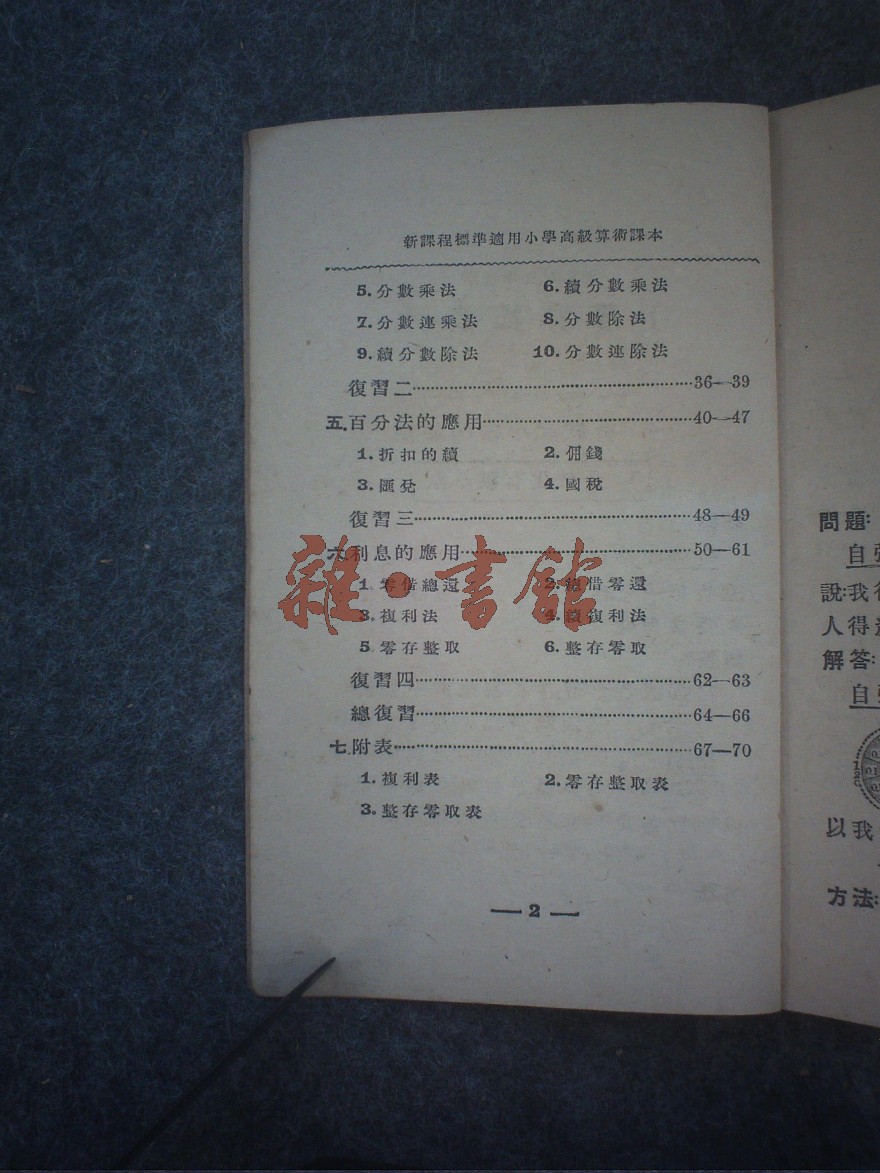 新課程標準適用小學高級算術課本
5.分數乘法 6.續分數乘法
7.分數連乘法 8.分數除法
9.續分數除法 10.分數連除法
復習二……36—39
五.百分法的應用……40—47
1.折扣的續 2.佣錢
3.匯兌 4.國稅
復習三……48—49
六.利息的應用……50—61
1.零借總還 2.總借零還
3.複利法 4.續複利法
5.零存整取 6.整存零取
復習四……62—63
總復習……64—66
七.附表……67—70
1.複利表 2.零存整取表
3.整存零取表
— 2 —
雜·書館
問題:
自
說:我
人得
解答:
自
以我
方法: